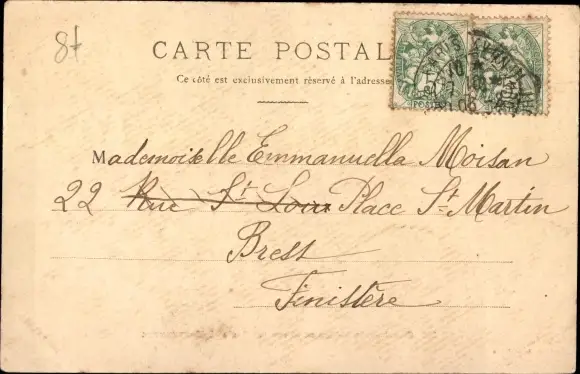 8f
CARTE POSTAL
Ce côté est exclusivement réservé à l'adresse
Mademoiselle Emmanuella Moisan
22 Rue St Louis Place St Martin
Brest
Finistère
PARIS